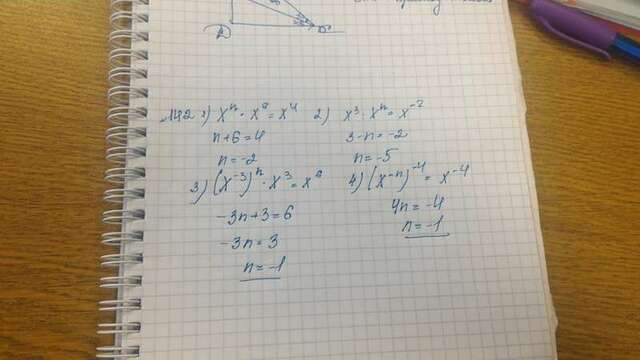 1) xⁿ · x⁶ = x⁴ 2) x³ xⁿ = x⁻²
n+6=4 3-n=-2
n=-2 n=-5
3) (x⁻³)ⁿ · x³ = x⁶ 4) (x⁻ⁿ)⁻⁴ = x⁻⁴
-3n+3=6 4n=-4
-3n=3 n=-1
n=-1